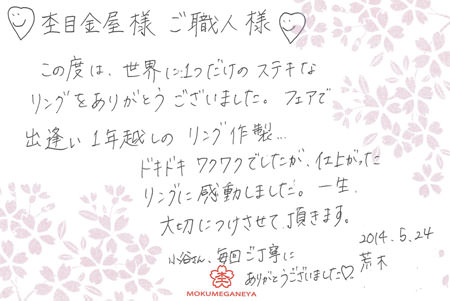 杢目金屋様 ご職人様
この度は、世界に1つだけのステキな
リングをありがとうございました。フェアで
出逢い1年越しのリング作製...
ドキドキワクワクでしたが、仕上がった
リングに感動しました。一生、
大切につけさせて頂きます。
小谷さん、毎回ご丁寧に
ありがとうございました♡
2014.5.24
荒木
MOKUMEGANEYA